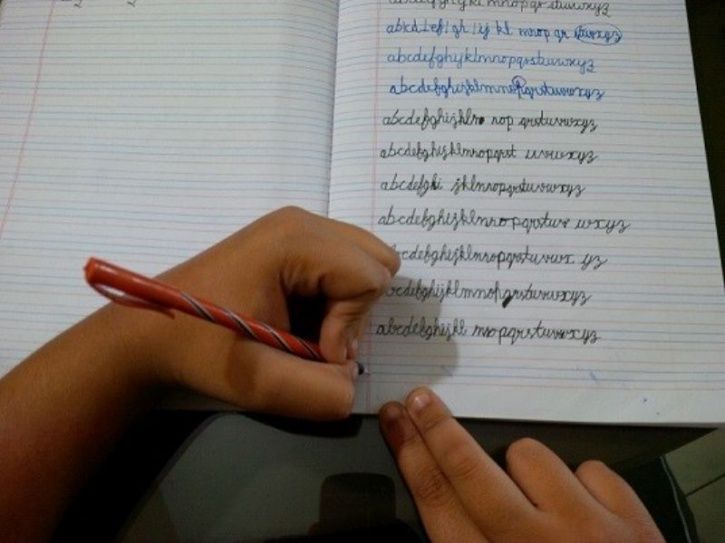 abcdefghijklmnopqrstuvwxyz
abcdefghijklmnopqrstuvwxyz
abcdefghijklmnopqrstuvwxyz
abcdefghijklmnopqrstuvwxyz
abcdefghijklm nopqrstuvwxyz
abcdefghijklmnopqrst uvwxyz
abcdefghi jklmnopqrstuvwxyz
abcdefghijklmnopqrstuv wxyz
abcdefghijklmnopqrstuvwx yz
abcdefghijklmnopqrstuvwxyz
abcdefghijkl mnopqrstuvwxyz